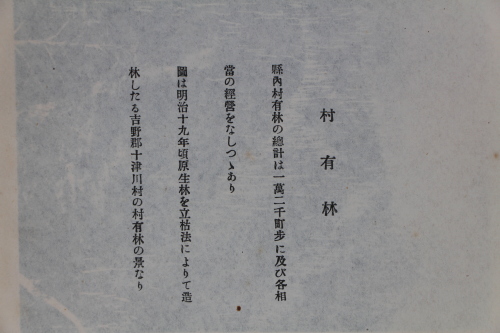 村有林
縣內村有林の總計は一萬二千町步に及び各相
當の經營をなしつゝあり
圖は明治十九年頃原生林を立枯法によりて造
林したる吉野郡十津川村の村有林の景なり